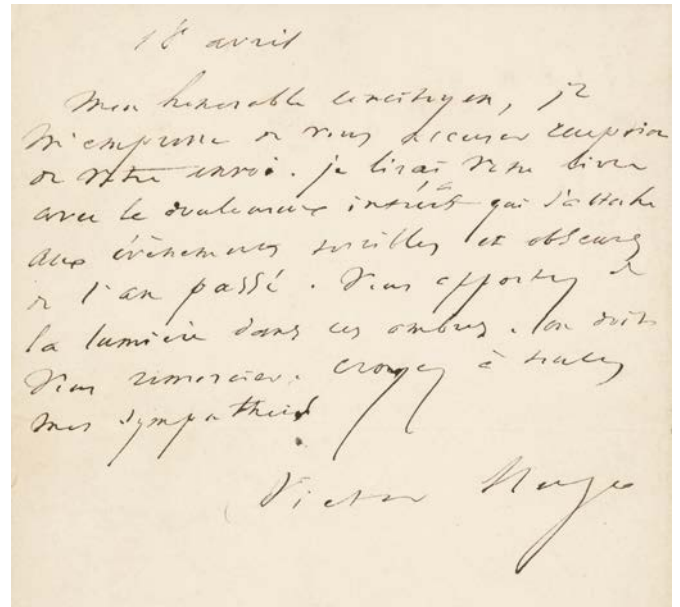 18 avril
Mon honorable concitoyen, je
m'empresse de vous accuser réception
de votre envoi. je lirai votre livre
avec le douloureux intérêt qui s'attache
aux événements terribles et obscurs
de l'an passé. Vous apportez de
la lumière dans ces ombres. on doit
vous remercier. croyez à toutes
mes sympathies.
Victor Hugo